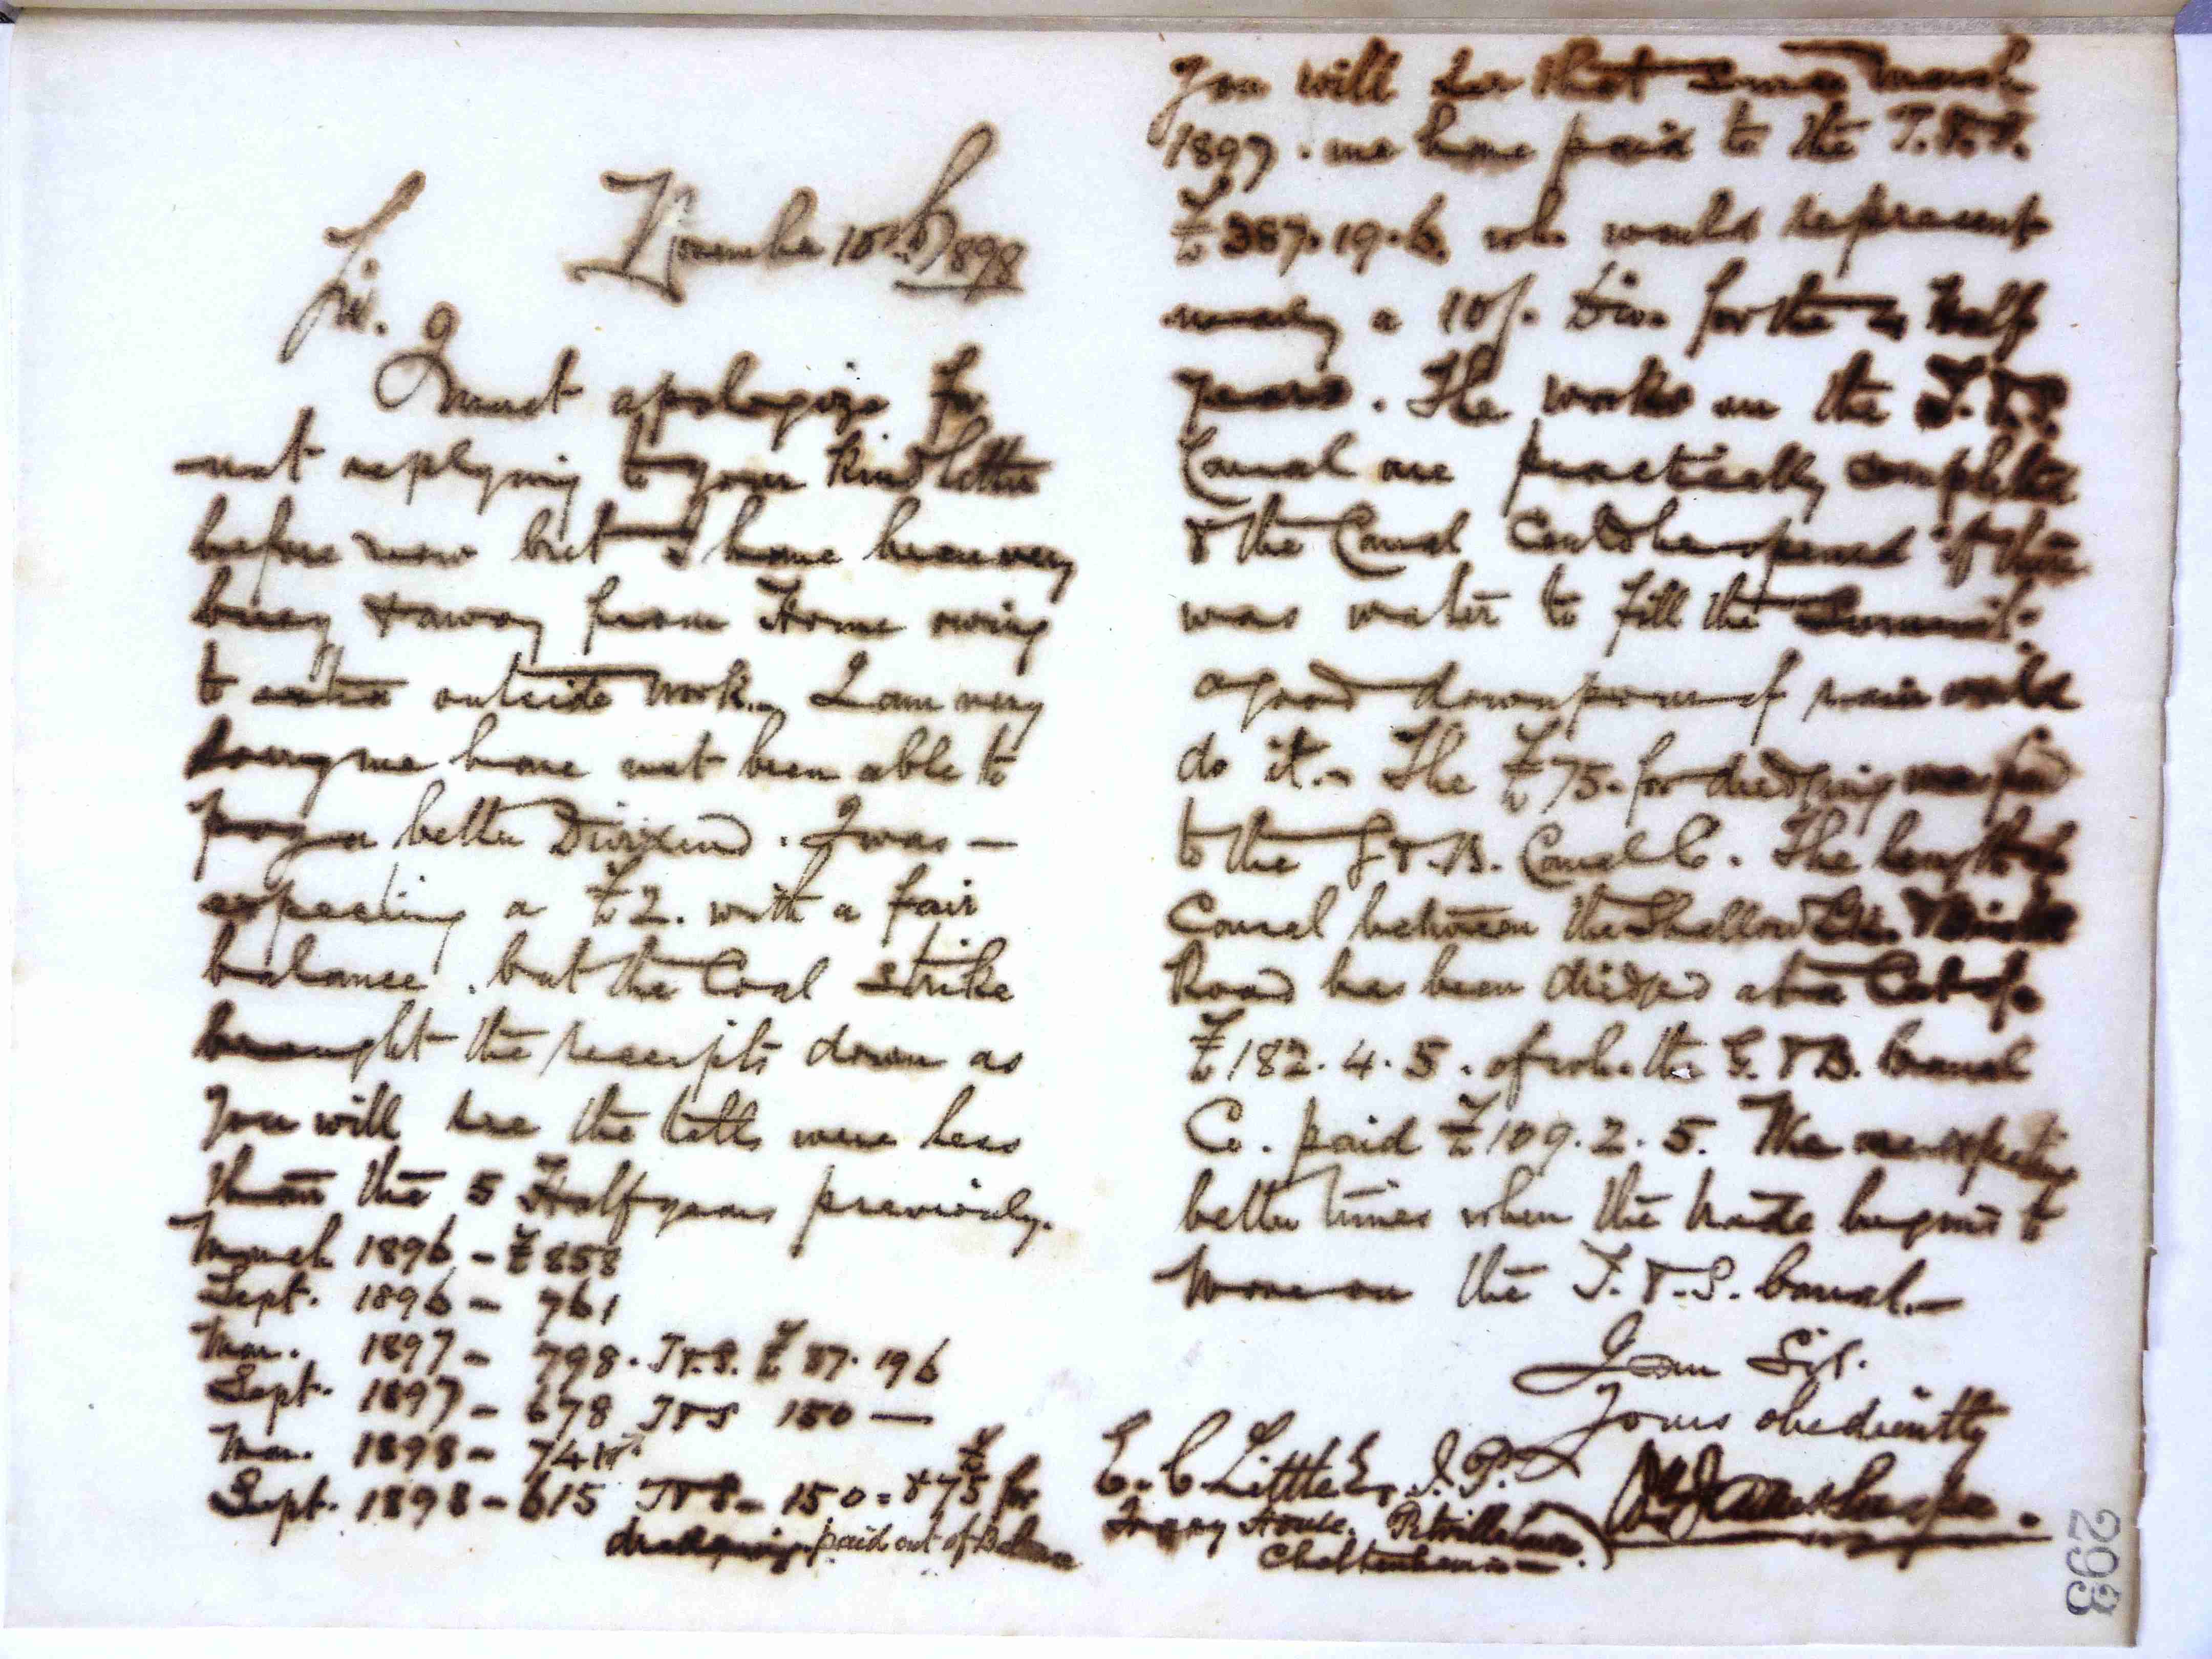 November 10th 1898
Sir.
I must apologize for
not replying to your kind letter
before now but I have been very
busy & away from Home owing
to extra outside work. I am very
sorry we have not been able to
pay a better Dividend. I was —
expecting a £2. with a fair
balance. but the Coal Strike
brought the receipts down as
you will see the tolls were less
than the 5 Half years previously.
March 1896 - £858
Sept. 1896 - 761
Mar. 1897 - 798. T&S. £87. 19 6
Sept. 1897 - 678 T&S 150 —
Mar. 1898 - 741
Sept. 1898 - 615 T&S - 150 - & £75 for
dredging paid out of Balance
You will see that since March
1897. we have paid to the T.&S.
£387.19.6. wh. would represent
nearly a 10/- Div. for the Half
years. The works on the T.&S.
Canal are practically completed
& the Canal Could be opened if there
was water to fill the Summit.
a good down pour of rain would
do it. - The £75. for dredging was paid
to the G&.B. Canal Co. The length of
Canal between the Shallow &
Road has been dredged at a Cost of
£182.4.5. of wh. the G.&B. Canal
Co. paid £109.2.5. We are expecting
better times when the trade begins to
move on the T.&.S. Canal. —
I am Sir.
Yours obediently
E. C. Little Esq. J.P.
House. Pittville Lawn
Cheltenham —
Wm J Snape.
293